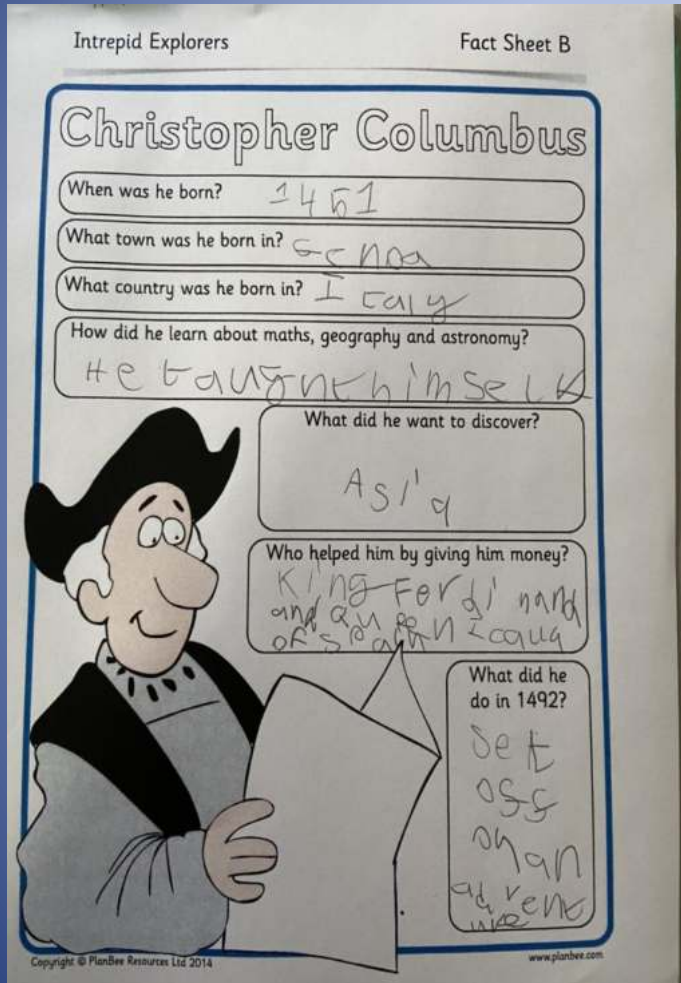 Intrepid Explorers
Fact Sheet B
Christopher Columbus
When was he born? 1451
What town was he born in? Genoa
What country was he born in? Italy
How did he learn about maths, geography and astronomy?
He taught himself
What did he want to discover?
Asia
Who helped him by giving him money?
King Ferdinand
and Queen
of Spain
What did he
do in 1492?
Set
off
on an
advent
ure
Copyright © PlanBee Resources Ltd 2014
www.planbee.com